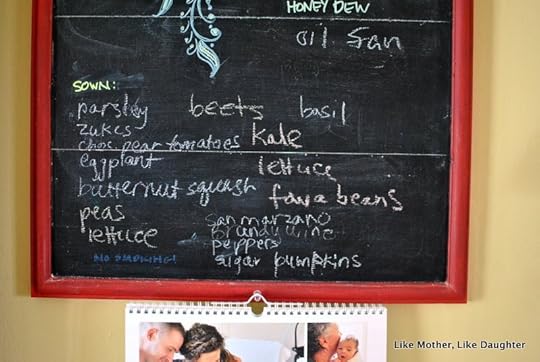 HONEY DEW
oil San
SOWN:
parsley beets basil
zukes
chos. pear tomatoes kale
eggplant lettuce
butternut squash fava beans
peas
lettuce
san marzano
brandywine
peppers
sugar pumpkins
NO SMOKING!
Like Mother, Like Daughter